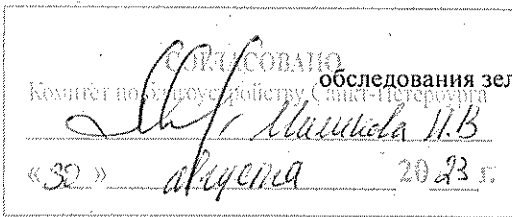 СОГЛАСОВАНО
обследования зел
Комитет по благоустройству Санкт-Петербурга
И.В
« 30 » августа 20 23 г.